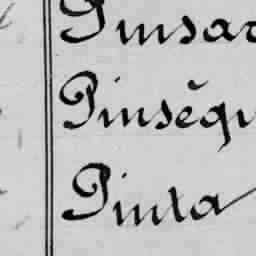 Pinsar
Pinsĕqu
Pinta